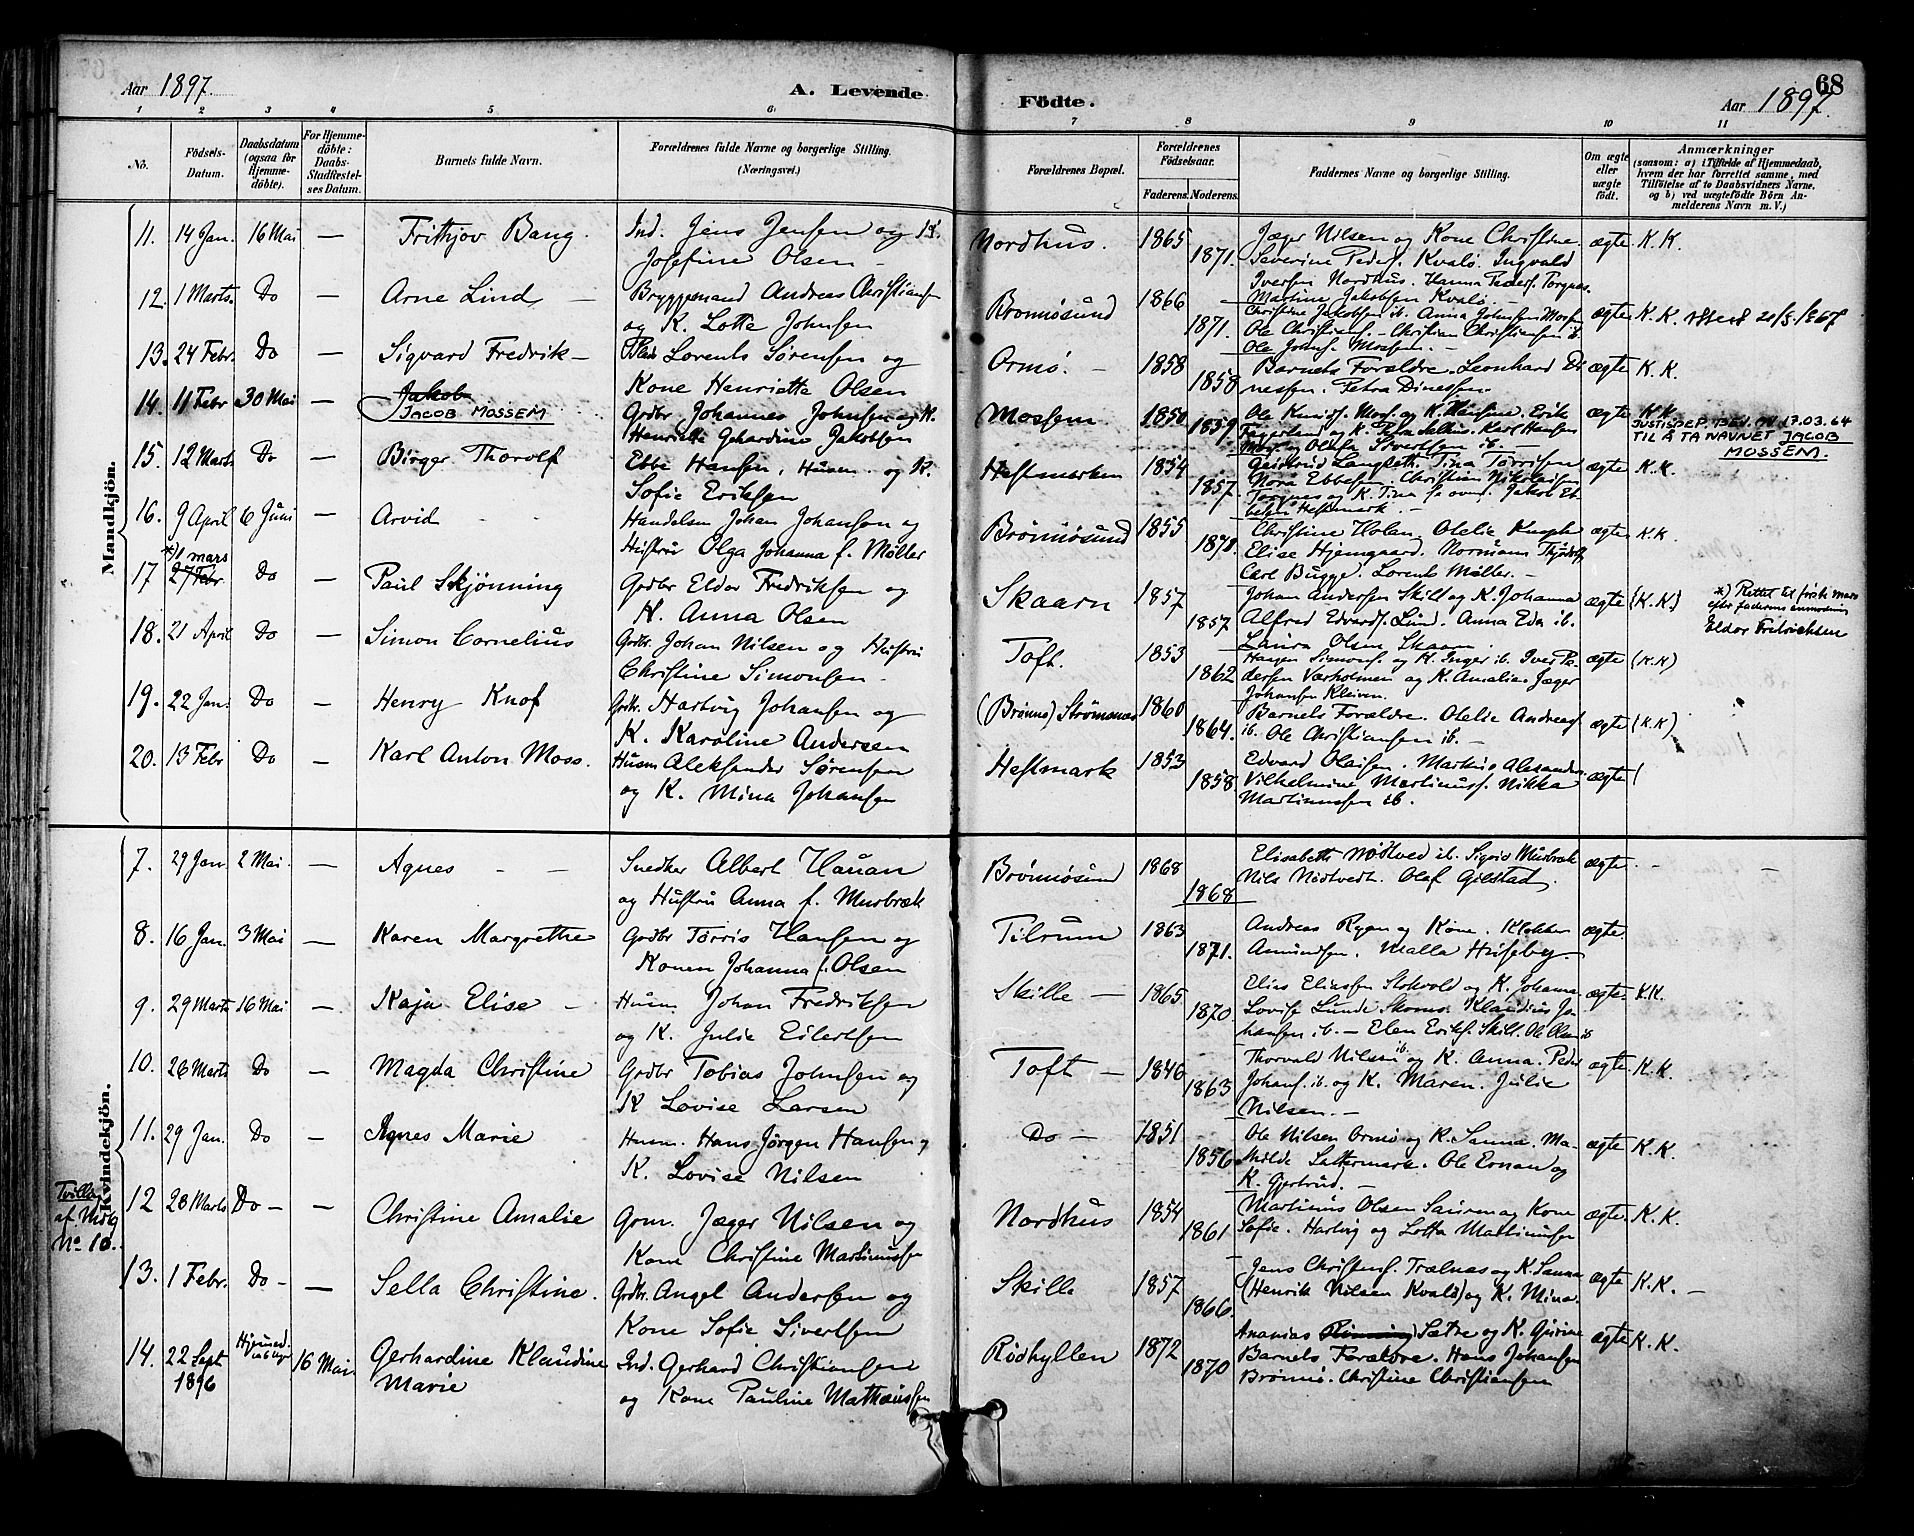 Aar 1897.
A. Levende
Födte.
Aar 1897.
68
1 2 3 4 5 6 7 8 9 10 11
No.
Födsels-
Datum.
Daabsdatum
(ogsaa for
Hjemme-
döbte).
For Hjemme-
döbte:
Daabs-
Stadfæstel-
ses Datum.
Barnets fulde Navn.
Forældrenes fulde Navne og borgerlige Stilling.
(Næringsvei.)
Forældrenes Bopæl.
Forældrenes
Födselsaar.
Faderens. Moderens.
Faddernes Navne og borgerlige Stilling.
Om ægte
eller
uægte
födt.
Anmærkninger
(saasom: a) i Tilfælde af Hjemmedaab,
hvem der har forrettet samme, med
Tilföielse af to Daabsvidners Navne,
og b) ved uægtefödte Börn An-
melderens Navn m. V.)
Mandkjön.
11. 14 Jan. 16 Mai — Frithjov Bang. Ind. Jens Jensen og K.
Josefine Olsen —
Nordhus. 1865 1871.
Jæger Nilsen og Kone Christine.
Severine Peders. Kvalø. Ingvald
Iversen Nordhus. Hanna Peders. Torgnes.
Martine Jakobsen Kvalø. —
ægte K.K.
12. 1 Marts. Do — Arne Lind — Bryggemand Andreas Christians
og K. Lotte Johnsen
Brønnøsund 1866 1871.
Christine Jakobsen ib. Anna Johnsen Mossem
Ole Christians. — Christian Christiansen ib.
Ole Johns. Mossem. —
ægte K.K. 20/9. 1967
13. 24 Febr. Do — Sigvard Fredrik — Lorents Sørensen og
Kone Henriette Olsen
Ormø. — 1858 1858
Barnets Forældre. Leonhard Di
nessen. Petra Dinessen.
ægte K.K.
14. 11 Febr 30 Mai — Jakob
JACOB MOSSEM
Gdbr Johannes Johnsen og K.
Henriette Gehardine Jakobsen
Mossem 1850 1859.
ægte K.K
JUSTISDEP. BEV. AV 13.03.64
TIL Å TA NAVNET JACOB
MOSSEM.
15. 12 Marts Do — Birger Thorolf Ebbe Hansen, Husm. og K.
Sofie Eriksen
Hestmarken 1854 1857.
Nora Ebbesen. Christian Nikolaisen
Torgnes og K. Tina
Hestmark. —
ægte K.K.
16. 9 April 6 Juni — Arvid Handelsm Johan Johansen og
Hustru Olga Johanna f. Møller
Brønnøsund 1855 1871.
Christine Holan. Otelie Knoph
Elise Hjemgaard. Normann
Carl Bugge. Lorents Møller. —
ægte K.K
17 *) 1 mars
27 Febr Do — Paul Skjønning Gdbr Eldor Fredriksen og
H. Anna Olsen
Skaarn 1857 1857
Johan Andersen Skill og K. Johanna
Alfred Edvards. Lund. Anna Eda ib.
Laura Olsen Skaarn.
ægte (K.K)
*) Rettet til första mars
efter faderens anmodning
Eldor Fredrichsen
18. 21 April Do — Simon Cornelius Gdbr. Johan Nilsen og Hustru
Christine Simonsen —
Toft. 1853 1862
Hagen Simons. og K. Inger ib. Iver Pe-
dersen Værholmen og K. Amalia. Jæger
Johansen Kleiven.
ægte (K.K)
19. 22 Jan. Do — Henry Knof Gdbr. Hartvig Johansen og
K. Karoline Andersen
(Brønnø) Strømsnes 1860 1864.
Barnets Forældre. Otelie Andreas.
ib. Ole Christiansen ib. —
ægte (K.K)
20. 13 Febr Do — Karl Anton Moss. Husm Aleksander Sørensen
og K. Mina Johansen
Hestmark 1853 1858
Edvard Olaisen. Markus Alexander.
Vilhelmine Martinus. Nikka
Martinussen ib.
ægte (
Kvindekjön.
7. 29 Jan. 2 Mai. — Agnes — — Snedker Albert Hauan
og Hustru Anna f. Musbræk
Brønnøsund 1868 1868
Elisabeth Nödtved ib. Sigrid Musbræk
Nils Nödtvedt. Olaf Gilstad.
ægte. - —
8. 16 Jan. 3 Mai — Karen Margrethe Gdbr Tørris Hansen og
Konen Johanna f. Olsen
Tilrum 1863 1871.
Andreas Ryan og Kone. Klokker
Amundsen. Malla Huseby. —
ægte.
9. 29 Marts 16 Mai — Kaja Elise — Husm Johan Fredriksen
og K. Julie Eilertsen
Skille — 1865 1870
Elias Eliassen Stokvold og K. Johanna
Lovise Lunde Skomo. Klaudius Jo-
hansen ib. — Elen Eriks. Skill. Ole Olsen ib
ægte. K.K.
10. 26 Marts Do — Magda Christine Gdbr Tobias Johnsen og
K Lovise Larsen
Toft — 1846 1863
Thorvald Nilsen ib. og K. Anna. Peder
Johans. ib. og K. Maren. Julie
Nilsen. —
ægte. K.K.
11. 29 Jan. Do — Agnes Marie Husm. Hans Jørgen Hansen og
K. Lovise Nilsen
Do — 1851 1856
Ole Nilsen Ormø og K. Sanna. Ma-
thilde Sattermark. Ole Ernan og
K. Gjertrud. —
ægte K.K.
Tvilling
af Mdkj
No 10.
12 28 Marts Do — — Christine Amalie Grm. Jæger Nilsen og
Kone Christine Martinussen
Nordhus 1854 1861
Martinus Olsen Sauren og Kone
Sofie. Hartvig og Lotta Martinusen
ægte. K.K.
13. 1 Febr. Do — — Sella Christine. Gdbr. Angel Andersen og
Kone Sofie Sivertsen
Skille 1857 1866
Jens Christens. Trælnes og K. Sanna
(Henrik Nilsen Kvalø) og K. Mina.
ægte K.K. —
14. 22 Sept
1896 Hjemmed 16 Mai Gerhardine Klaudine
Marie
Ind. Gerhard Christiansen
og Kone Pauline Mathæussen
Rødhyllen 1872 1870
Ananias Sætre og K. Gurine
Barnets Forældre. Hans Johansen
Brønnø. Christine Christiansen
ægte K.K.